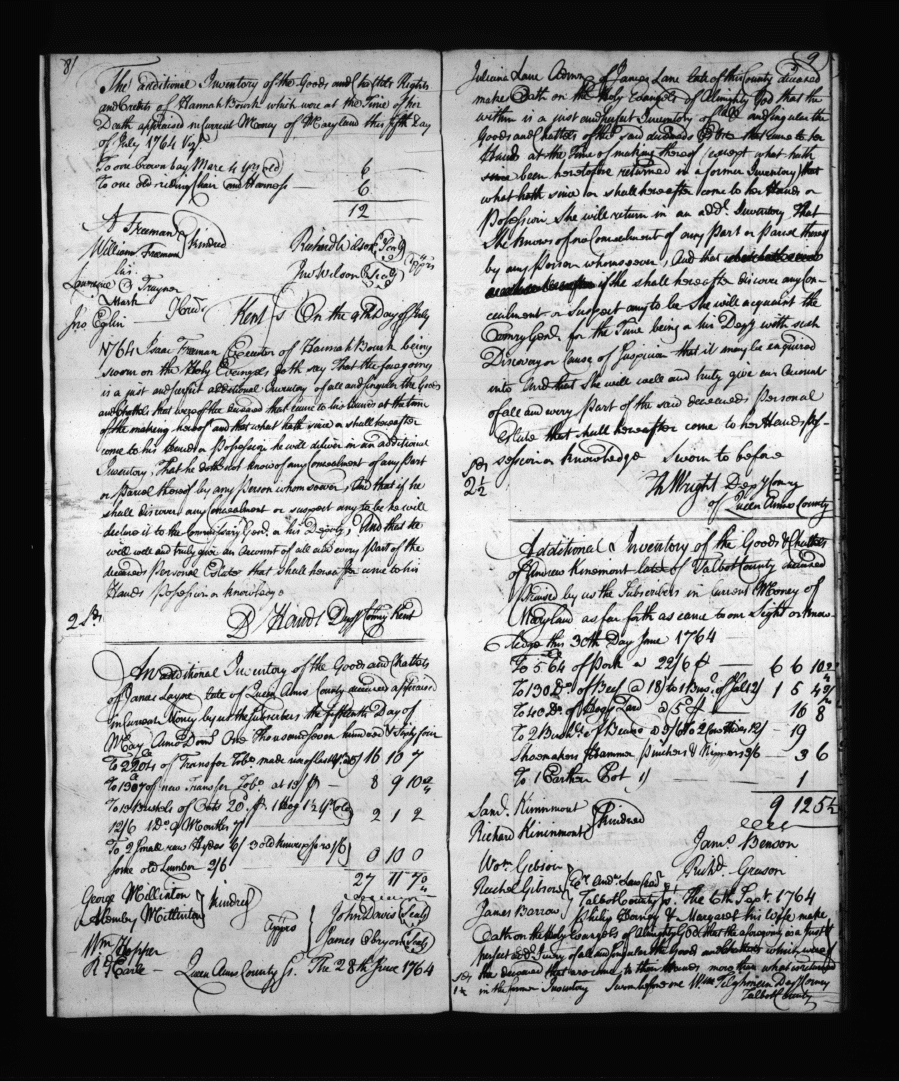 8/
The additional Inventory of the Goods and Chattels Rights
and Credits of Hannah Bourk which were at the Time of her
Death appraised in Current Money of Maryland this fifth Day
of July 1764 Viz
To one brown bay Mare 4 yrs old — 6
To one old riding Chair and Harness — 6
12
A Freeman
William Freeman } Kindred
his
Laurence Traynor
Mark
Jno Eglin — Cred
Richard Wilson Seal
Jno Wilson Seal } Apprs
Kent Ss On the 9th Day of July
1764 Isaac Freeman Executor of Hannah Bourk being
sworn on the Holy Evangels doth say That the foregoing
is a just and perfect additional Inventory of all and singular the Goods
and Chattels that were of the deceased that came to his hands at the time
of the making hereof and that what hath since or shall hereafter
come to his Hands or Possession he will deliver in an additional
Inventory, That he doth not know of any Concealment of any Part
or Parcel thereof by any Person whomsoever, And that if he
shall discover any concealment or suspect any to be he will
declare it to the Commissary Genl. or his Deputy, And that he
will well and truly give an Account of all and every Part of the
deceaseds Personal Estate that shall hereafter come to his
Hands Possession or knowledge
2 Sds
D Hands Depy Comry Kent
An additional Inventory of the Goods and Chattels
of James Layne late of Queen Anns County deceased appraised
in Current Money by us the Subscribers the fifteenth Day of
May Anno Domi One Thousand seven hundred & Sixty four
To 2204 of Transfer Tobo made in of last 16 10 7
To 1307 of new Transfer Tobo at 13/ 8 9 10
To Bushels of Oats 20/ 1 Hog 1½ yr old
12/6 1 Do 9 Months 7/ 2 1 2
To 2 Small raw Hydes 6/ 3 old knives
some old Lumber 2/6 0 10 0
27 11 7
George Millinton
Alemby Millinton } Kindred
Wm Hopper
R Earle
Apprs { John Davis Seal
James Obryon Seal
Queen Anns County Ss. The 28th June 1764
9
Juliana Lane Admx of James Lane late of this County deceased
makes Oath on the Holy Evangels of Almighty God that the
within is a just and perfect Inventory of all and singular the
Goods and Chattels of the said deceased that came to her
Hands at the Time of making thereof except what hath
since been heretofore returned in a former Inventory that
what hath since or shall hereafter come to her Hands or
Possession She will return in an addl. Inventory That
She knows of no Concealment of any Part or Parcel thereof
by any Person whomsoever, And that
if she shall hereafter discover any Con-
cealment or Suspect any to be She will acquaint the
Comry Genl. for the Time being or his Depy with such
Discovery or Cause of Suspicion that it may be enquired
into And that She will well and truly give an Account
of all and every Part of the said deceaseds Personal
Estate that shall hereafter come to her Hands Pos-
session or knowledge Sworn to before
Sds
2½
Th Wright Depy Comry
of Queen Anns County
Additional Inventory of the Goods & Chattels
of Andrew Kinemont late of Talbot County deceased
praised by us the Subscribers in Current Money of
Maryland as far forth as came to our Sight or Know-
ledge this 30th Day June 1764
To 564 of Pork a 22/6 — 6 6 10
To 130 Do of Beef @ 18/ to 1 Bus. of Salt 2/ 1 5 4
To 40 Do of Hogs Lard a 5d — 16 8
To 2 Bushls of Beans — 19
Shoemakers Hammer Pinchers & Nippers 3/6 — 3 6
To 1 Earthen Pot 1/ — 1
9 12 5½
Saml. Kininmont
Richard Kininmont } Kindred
James Benson
Richd. Greason
Wm Gibson
Rachel Gibson
James Barrow
Talbot County Ss The 6th Sept. 1764
Philip & Margaret his Wife make
Oath on the Holy Evangels of Almighty God that the aforegoing is a Just &
perfect addl Invry of all and singular the Goods and Chattels which were of
the deceased that are come to their Hands more than what is returned
Sds
in the former Inventory Sworn before me Wm Tilghman Depy Comry
Talbot County